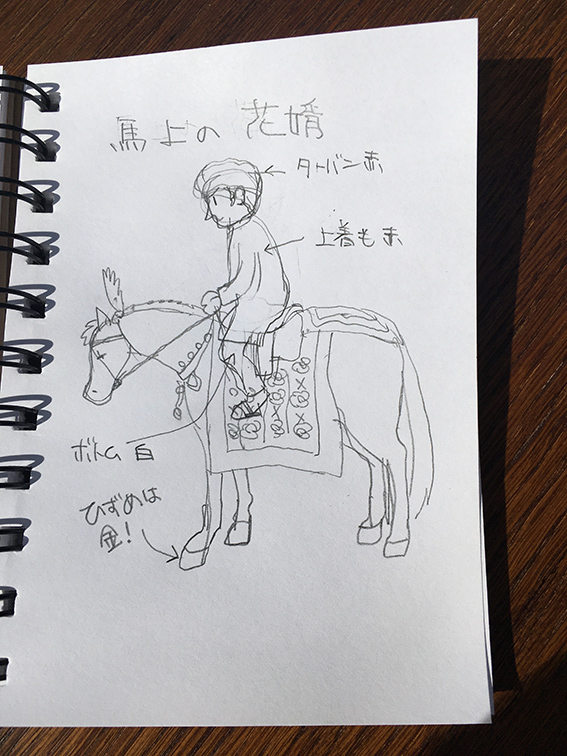 馬上の花婿
ターバン赤
上着も赤
ボトム白
ひずめは
金!